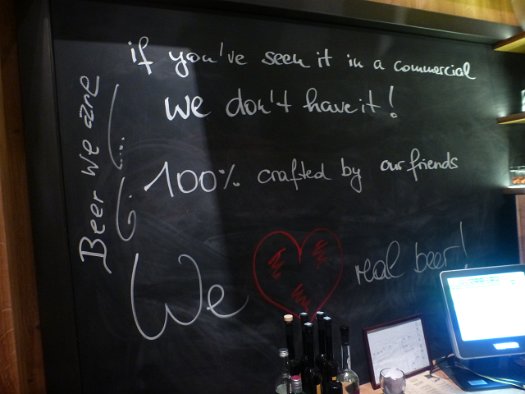 if you've seen it in a commercial
we don't have it!
100% crafted by our friends
We real beer!
Beer we are